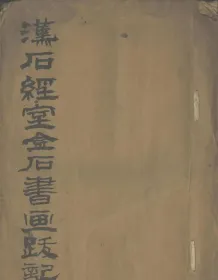 漢石經室金石書画跋記